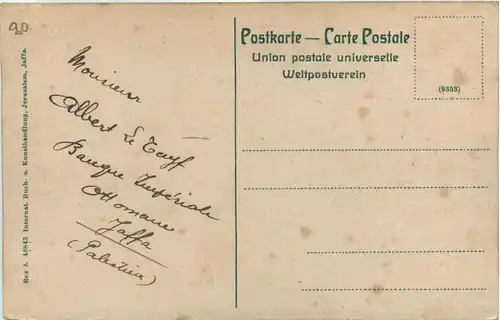 90
Rex & 48843 Internat. Buch- u. Kunsthandlung, Jerusalem, Jaffa.
Monsieur
Albert Le Tayf
Banque Impériale
Ottomane
Jaffa
(Palestine)
Postkarte — Carte Postale
Union postale universelle
Weltpostverein
(9353)